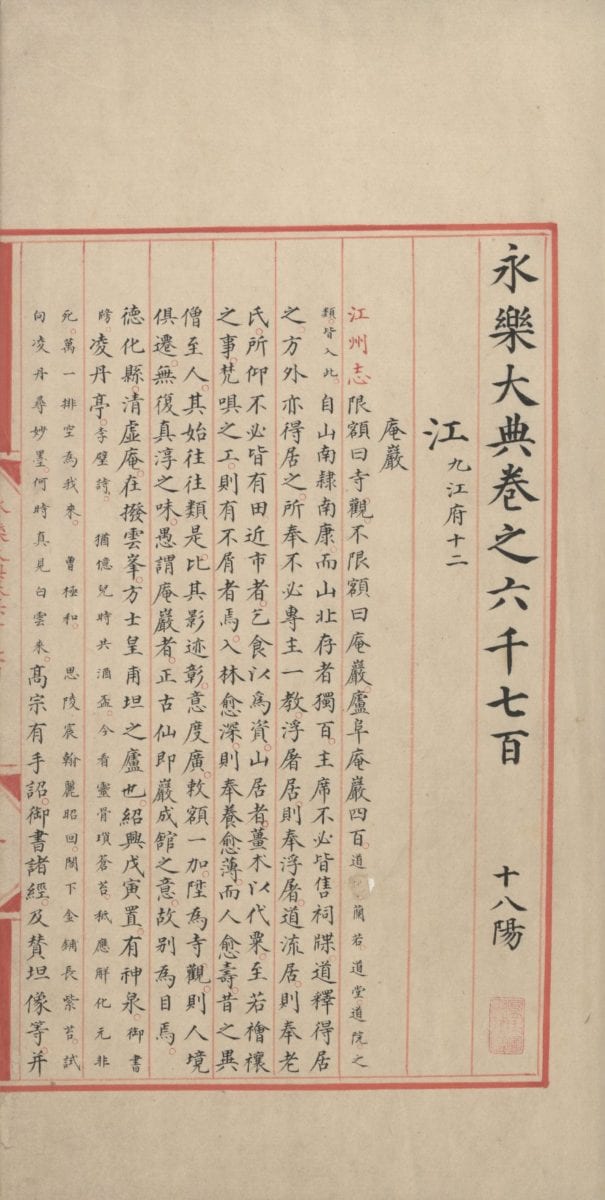 永樂大典卷之六千七百　十八陽
江　九江府十二
庵巖
江州志限額曰寺觀。不限額曰庵巖。廬阜庵巖四百。道蘭若。道堂道院之
類皆入此。自山南隸南康而山北存者獨百。主席不必皆售祠牒道釋得居
之方外亦得居之。所奉不必專主一教。浮屠居則奉浮屠。道流居。則奉老
氏。所仰不必皆有田近市者。乞食以為資。山居者。薑朮以代粟。至若禬禳
之事。梵唄之工。則有不屑者焉。入林愈深。則奉養愈薄。而人愈壽。昔之異
僧至人。其始往往類是。比其影迹彰。意度廣。敕額一加。陞為寺觀。則人境
俱遷。無復真淳之味。愚謂庵巖者。正古仙即巖成館之意。故别為目焉。
德化縣。清虛庵。在撥雲峯。方士皇甫坦之廬也。紹興戊寅置。有神泉。御書
牓。凌丹亭。李壁詩。猶憶兒時共酒盃。今看靈骨瑣蒼苔。秪應解化元非
死。萬一排空為我來。曹極和。思陵宸翰麗昭回。閟下金鋪長紫苔。試
向凌丹尋妙墨。何時真見白雲來。高宗有手詔。御書諸經。及賛坦像等。并